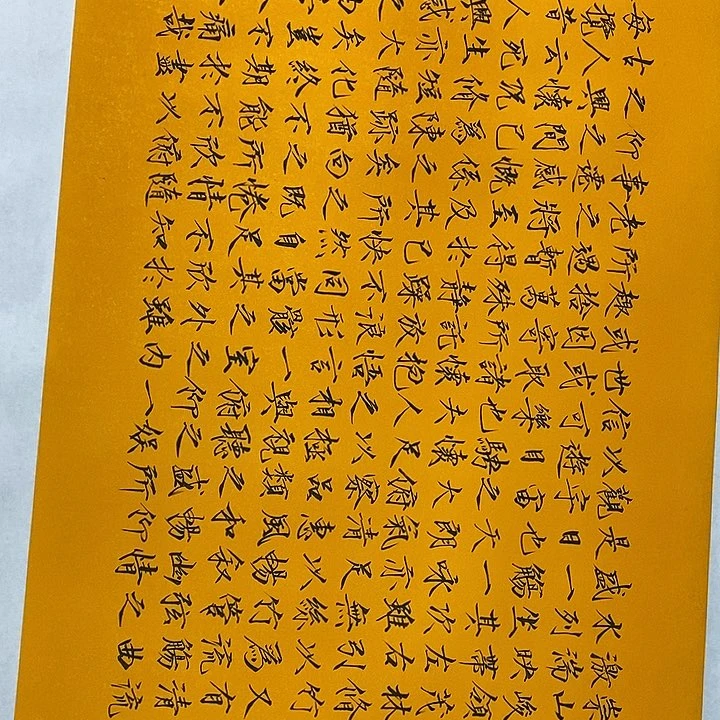 崇山峻領茂林脩竹又有清流
激湍映帶左右引以為流觴曲
水列坐其次雖無絲竹管弦之
盛一觴一詠亦足以暢敘幽情
是日也天朗氣清惠風和暢仰
觀宇宙之大俯察品類之盛所
以遊目騁懷足以極視聽之娛
信可樂也夫人之相與俯仰一
世或取諸懷抱悟言一室之內
或因寄所託放浪形骸之外雖
趣捨萬殊靜躁不同當其欣於
所遇暫得於己快然自足不知
老之將至及其所之既惓情隨
事遷感慨係之矣向之所欣俯
仰之間已為陳跡猶不能不以
之興懷況脩短隨化終期於盡
古人云死生亦大矣豈不痛哉
每攬昔人興感之由